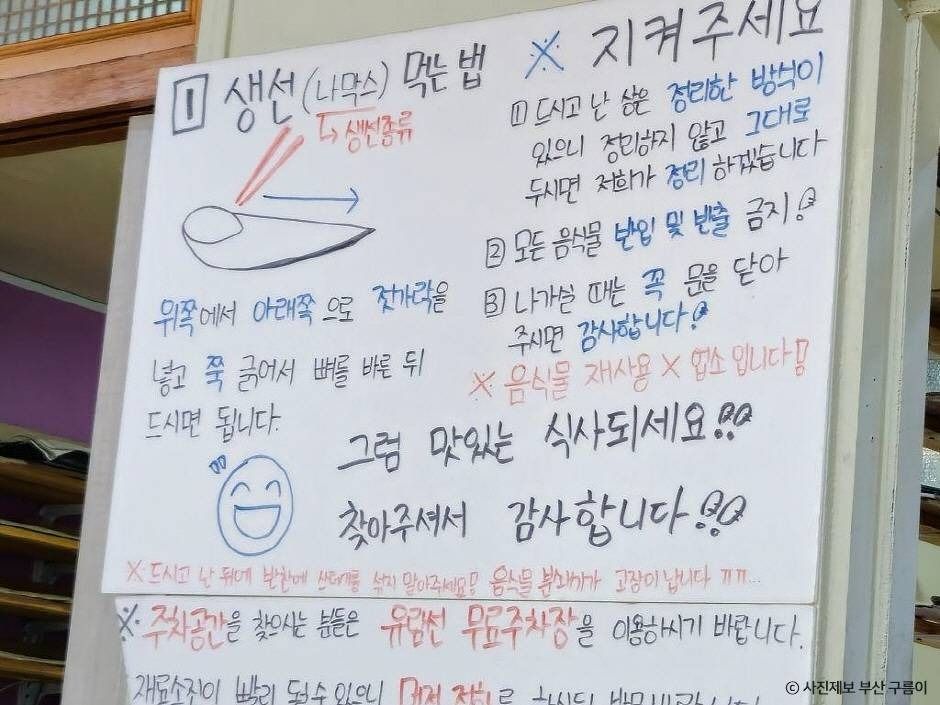 1 생선(나막스) 먹는 법
↳생선종류
위쪽에서 아래쪽으로 젓가락을
넣고 쭉 긁어서 뼈를 바른 뒤
드시면 됩니다.
※ 지켜주세요
1 드시고 난 상은 정리한 방식이
있으니 정리하지 않고 그대로
두시면 저희가 정리 하겠습니다
2 모든 음식물 반입 및 반출 금지!
3 나가실 때는 꼭 문을 닫아
주시면 감사합니다!
※ 음식물 재사용 × 업소 입니다!!
그럼 맛있는 식사되세요!!
찾아주셔서 감사합니다!!
※ 드시고 난 뒤에 반찬에 쓰레기를 섞지 말아주세요!! 음식물 분쇄기가 고장이 납니다 ㅠㅠ...
※ 주차공간을 찾으시는 분들은 유람선 무료주차장을 이용하시기 바랍니다.
재료소진이 빨리 될수 있으니 먼저 전화로
© 사진제보 부산 구름이